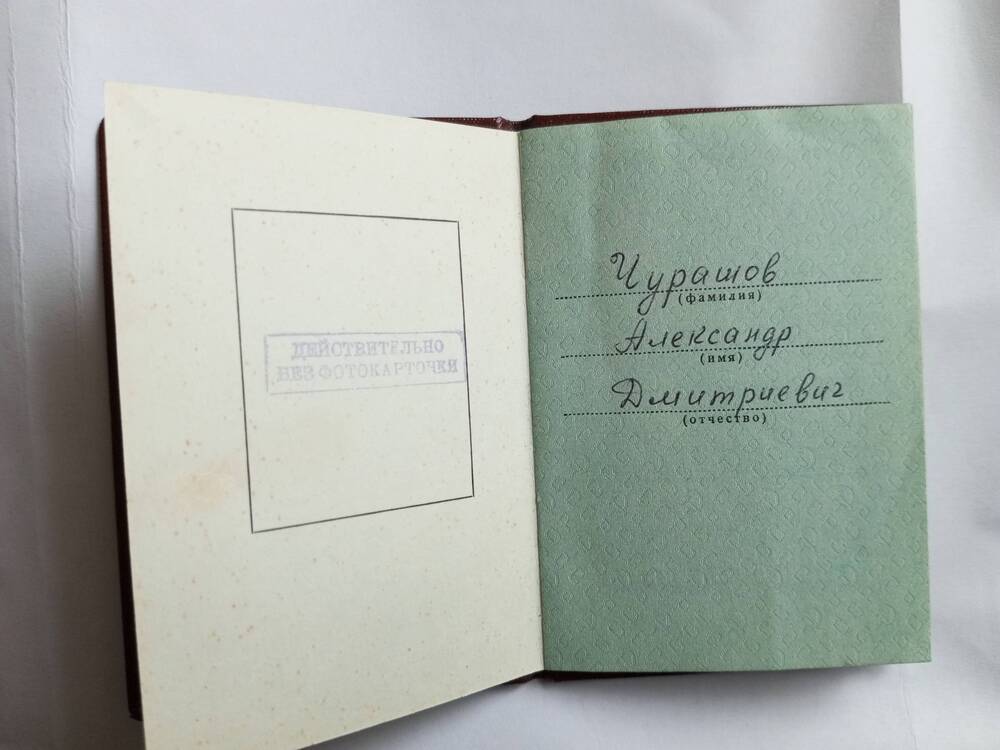 ДЕЙСТВИТЕЛЬНО
БЕЗ ФОТОКАРТОЧКИ
Чурашов
(фамилия)
Александр
(имя)
Дмитриевич
(отчество)